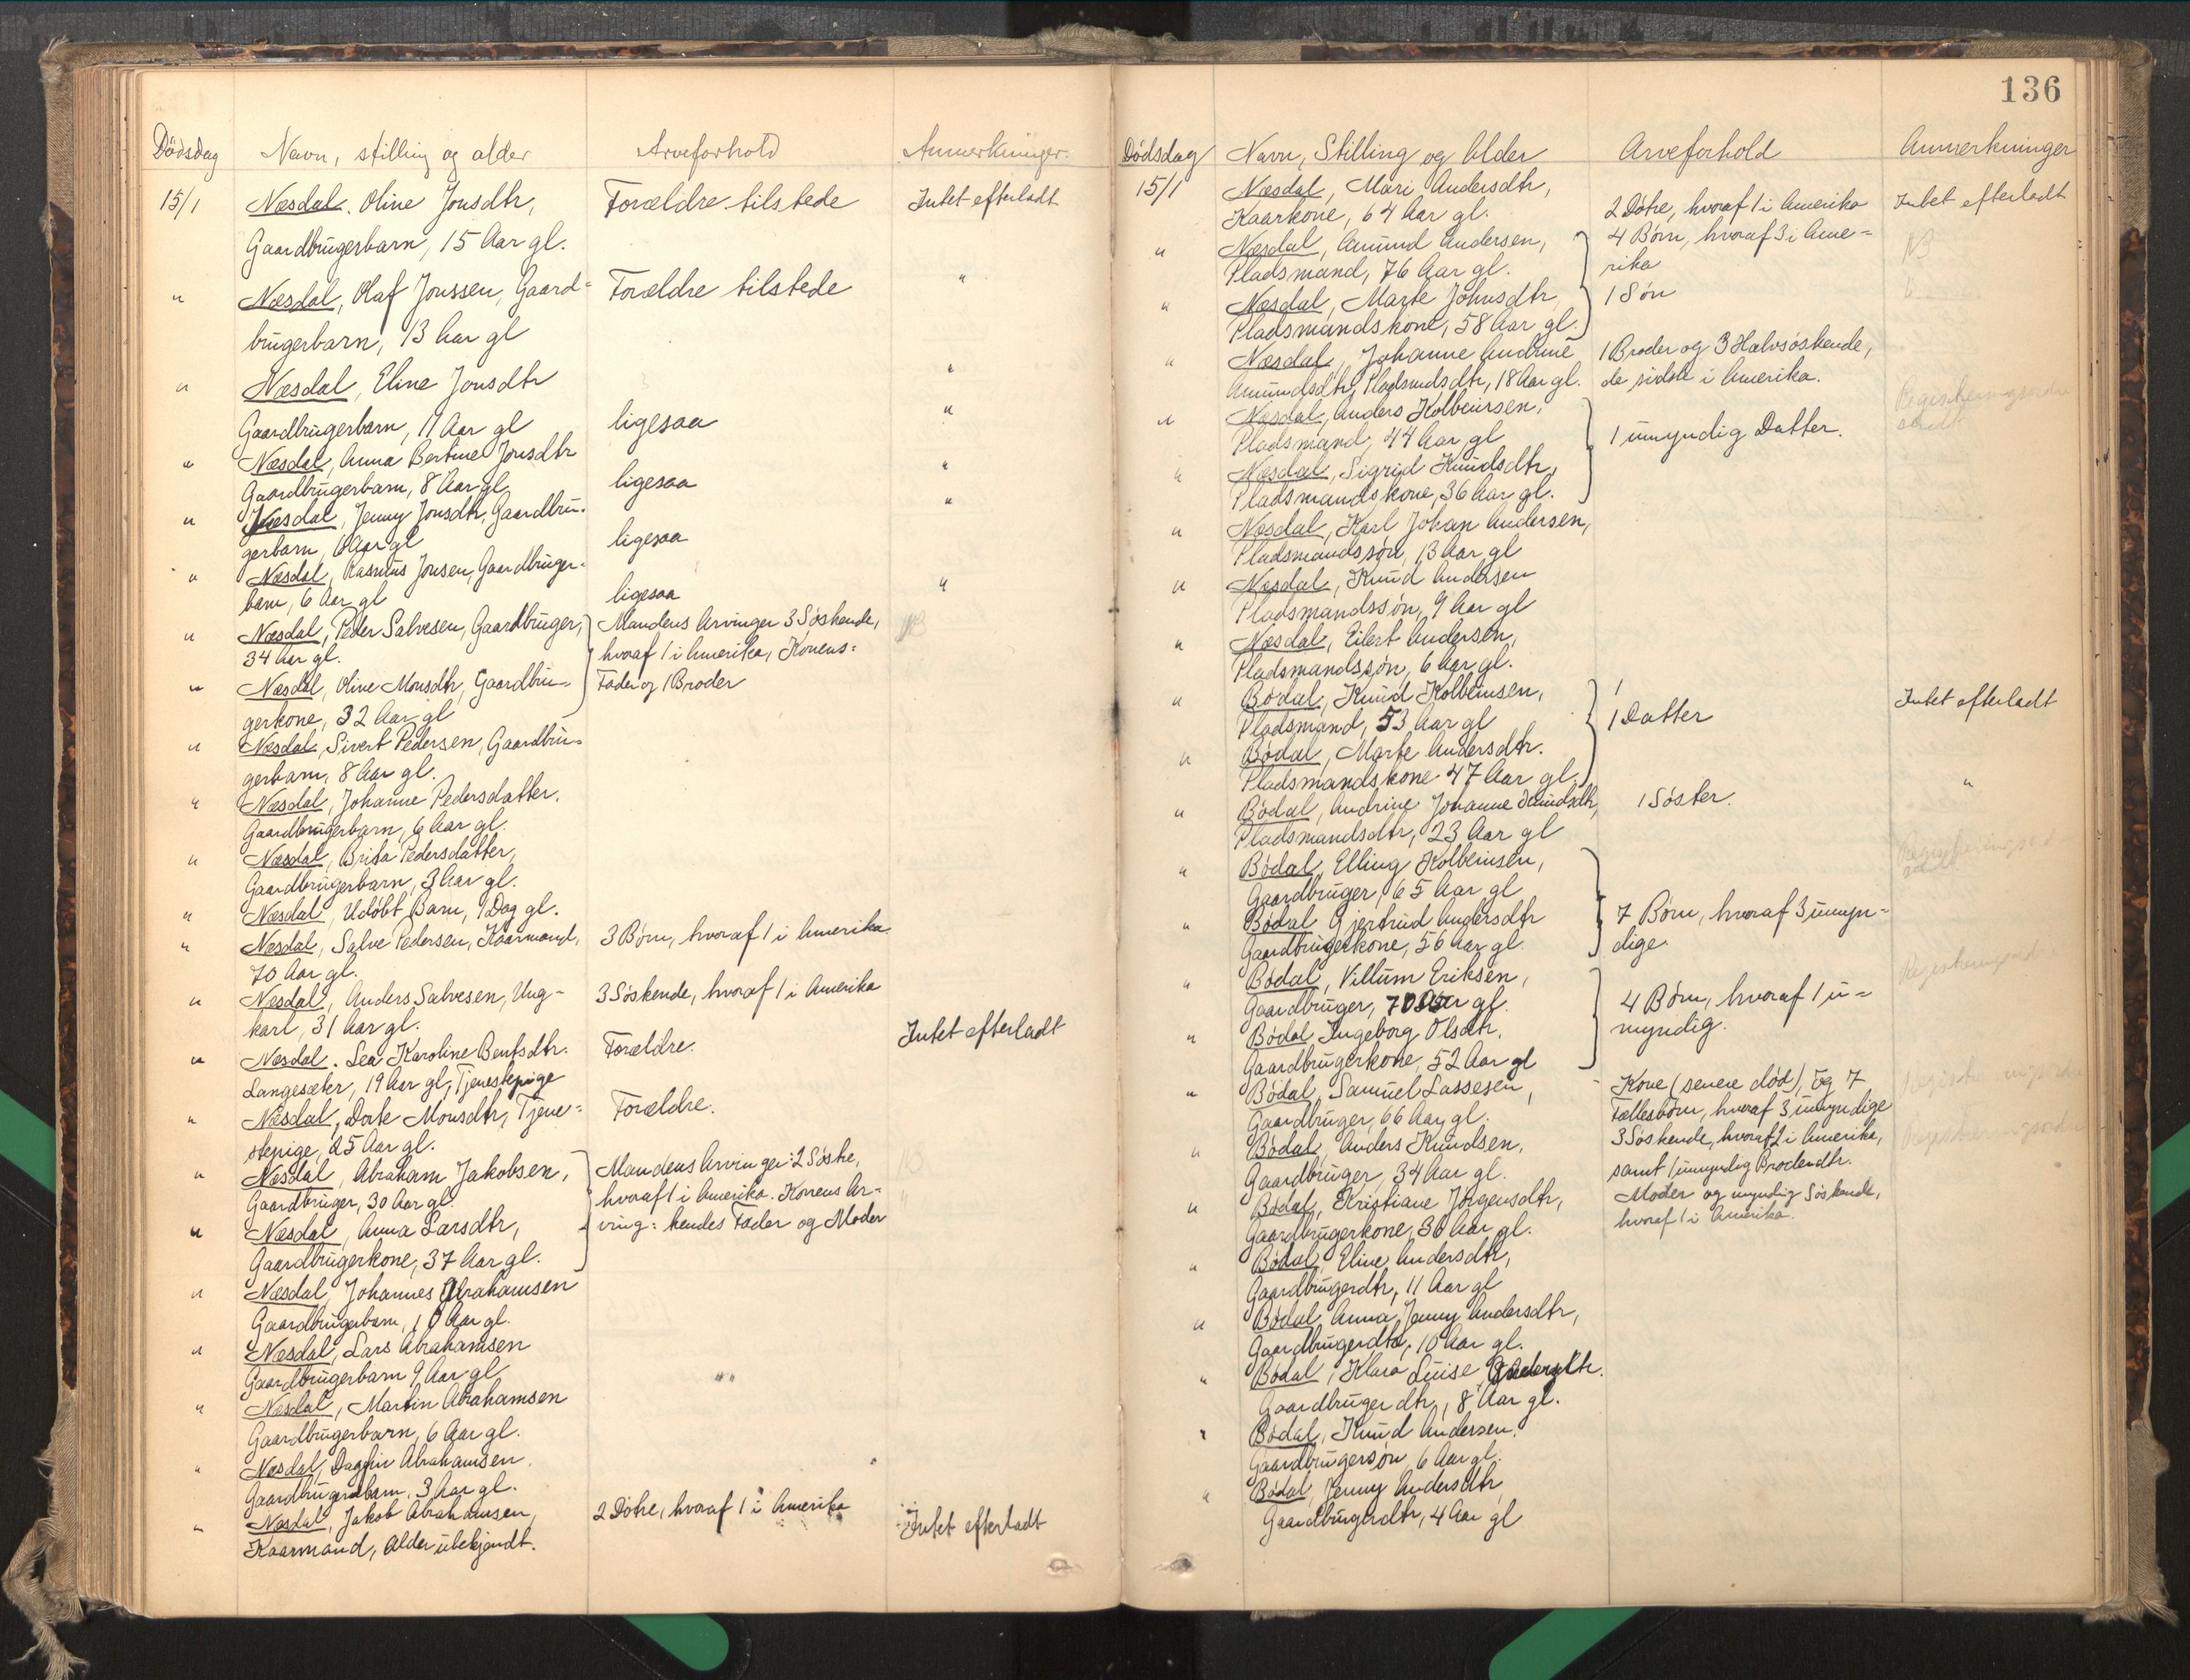 136
Dødsdag Navn, stilling og alder Arveforhold Anmerkninger
15/1 Næsdal, Oline Jonsdtr, Forældre tilstede Intet efterladt
Gaardbrugerbarn, 15 Aar gl.
" Næsdal, Olaf Jonssen, Gaard= Forældre tilstede "
brugerbarn, 13 Aar gl
" Næsdal, Eline Jonsdtr "
Gaardbrugerbarn, 11 Aar gl ligesaa "
" Næsdal, Anna Bertine Jonsdtr
Gaardbrugerbarn, 8 Aar gl ligesaa "
" Næsdal, Jenny Jonsdtr, Gaardbru- "
gerbarn, 6 Aar gl ligesaa
" Næsdal, Rasmus Jonsen, Gaardbruger-
barn, 6 Aar gl ligesaa "
" Næsdal, Peder Salvesen, Gaardbruger, Mandens Arvinger 3 Søskende, NB
34 Aar gl. hvoraf 1 i Amerika, Konens:
" Næsdal, Oline Monsdtr, Gaardbru- Fader og 1 Broder
gerkone, 32 Aar gl
" Næsdal, Sivert Pedersen, Gaardbru-
gerbarn, 8 Aar gl.
" Næsdal, Johanne Pedersdatter,
Gaardbrugerbarn, 6 Aar gl.
" Næsdal, Brita Pedersdatter,
Gaardbrugerbarn, 3 Aar gl.
" Næsdal, Udøbt Barn, 1 Dag gl.
" Næsdal, Salve Pedersen, Kaarmand, 3 Børn, hvoraf 1 i Amerika
70 Aar gl.
" Næsdal, Anders Salvesen, Ung- 3 Søskende, hvoraf 1 i Amerika
karl, 31 Aar gl.
" Næsdal. Lea Karoline Bentsdtr. Forældre. Intet efterladt
Langesæter, 19 Aar gl, Tjenestepige
" Næsdal, Dorte Monsdtr, Tjene= Forældre.
stepige, 25 Aar gl.
" Næsdal, Abraham Jakobsen, Mandens Arvinger: 2 Søstre,
Gaardbruger, 30 Aar gl. hvoraf 1 i Amerika. Konens Ar-
" Næsdal, Anna Larsdtr, ving: hendes Fader og Moder
Gaardbrugerkone, 37 Aar gl.
" Næsdal, Johannes Abrahamsen
Gaardbrugerbarn, 10 Aar gl.
" Næsdal, Lars Abrahamsen
Gaardbrugerbarn 9 Aar gl "
" Næsdal, Martin Abrahamsen
Gaardbrugerbarn, 6 Aar gl.
" Næsdal, Dagfin Abrahamsen.
Gaardbrugerbarn, 3 Aar gl.
" Næsdal, Jakob Abrahamsen, 2 Døtre, hvoraf 1 i Amerika Intet efterladt
Kaarmand, Alder ubekjendt.
Dødsdag Navn, Stilling og Alder Arveforhold Anmerkninger
15/1 Næsdal, Mari Andersdtr,
Kaarkone, 64 Aar gl. 2 Døtre, hvoraf 1 i Amerika Intet efterladt
" Næsdal, Amund Andersen, 4 Børn, hvoraf 3 i Ame= NB
Pladsmand, 76 Aar gl. rika
" Næsdal, Marte Johnsdtr 1 Søn
Pladsmandskone, 58 Aar gl.
" Næsdal, Johanne Andrine 1 Broder og 3 Halvsøskende,
Amundsdtr, Pladsmdsdtr, 18 Aar gl. de sidste i Amerika.
" Næsdal, Anders Kolbeinsen,
Pladsmand, 44 Aar gl 1 umyndig Datter.
" Næsdal, Sigrid Knudsdtr,
Pladsmandskone, 36 Aar gl.
" Næsdal, Karl Johan Andersen,
Pladsmandssøn, 13 Aar gl
" Næsdal, Knud Andersen
Pladsmandssøn, 9 Aar gl
" Næsdal, Eilert Andersen,
Pladsmandssøn, 6 Aar gl.
" Bødal, Knud Kolbeinsen, Intet efterladt
Pladsmand, 53 Aar gl 1 Datter
" Bødal, Marte Andersdtr.
Pladsmandskone 47 Aar gl. "
" Bødal, Andrine Johanne Knudsdtr, 1 Søster.
Pladsmandsdtr, 23 Aar gl
" Bødal, Elling Kolbeinsen,
Gaardbruger, 65 Aar gl
" Bødal Gjertrud Andersdtr 7 Børn, hvoraf 3 umyn=
Gaardbrugerkone, 56 Aar gl. dige.
" Bødal, Villum Eriksen,
Gaardbruger, 70 Aar gl. 4 Børn, hvoraf 1 u=
" Bødal Ingeborg Olsdtr. myndig.
Gaardbrugerkone, 52 Aar gl
" Bødal, Samuel Lassesen, Kone (senere død), og 7
Gaardbruger, 66 Aar gl. Fællesbørn, hvoraf 3 umyndige
" Bødal, Anders Knudsen, 3 Søskende, hvoraf 2 i Amerika,
Gaardbruger, 34 Aar gl. samt 1 umyndig Broderdtr.
" Bødal, Kristiane Jørgensdtr, Moder og myndig Søskende,
Gaardbrugerkone, 36 Aar gl. hvoraf 1 i Amerika.
" Bødal, Eline Andersdtr,
Gaardbrugerdtr, 11 Aar gl
" Bødal Anna Jenny Andersdtr,
Gaardbrugerdtr, 10 Aar gl.
" Bødal, Klara Luise Andersdtr.
Gaardbrugerdtr, 8 Aar gl.
" Bødal, Knud Andersen.
Gaardbrugersøn, 6 Aar gl.
" Bødal, Jenny Andersdtr
Gaardbrugerdtr, 4 Aar gl